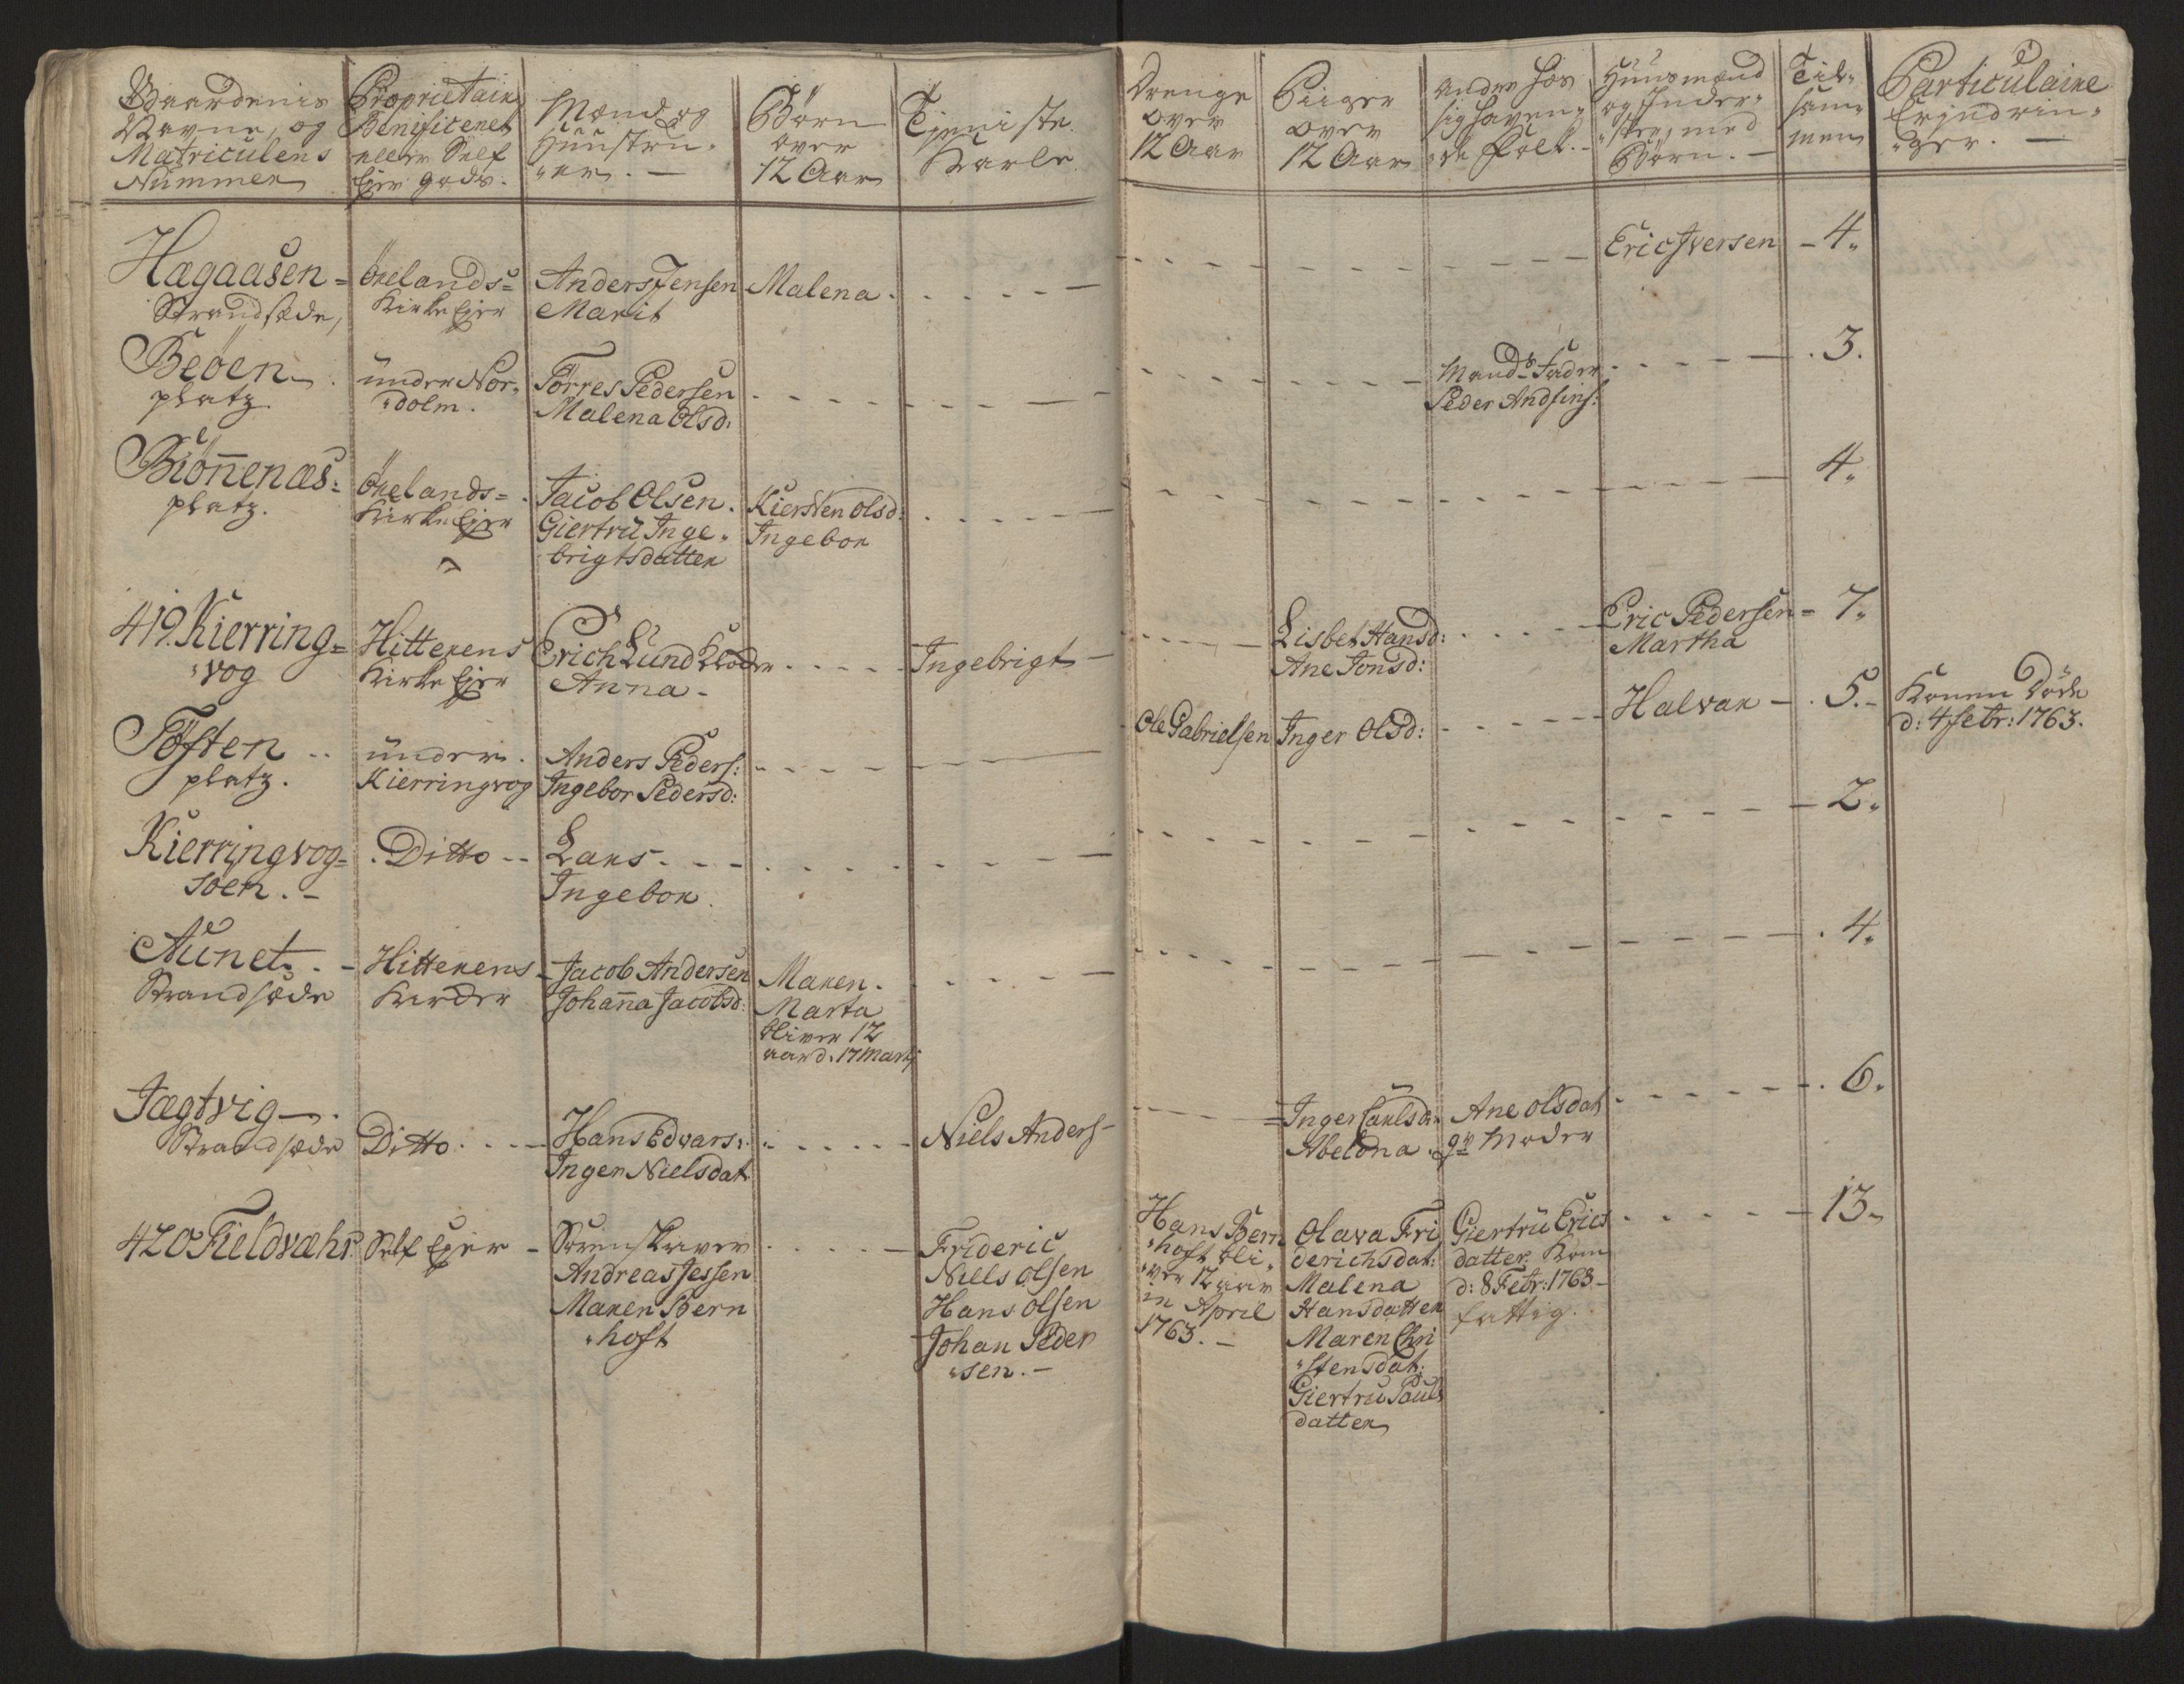 Gaardenis Navne, og Matriculens Nummer
Proprietair Benificeret eller Self Ejer gods.
Mænd og Hüüstrü„er. —
Börn over 12 Aar
Tjeniste Karle
Drenge over 12 Aar
Piiger over 12 Aar
Andre hos sig haven„de Folk. —
Hüüsmænd og Inder„ster, med Börn. —
Til„sam„men
Particulaire Erindrin„ger. —
Hagaasen = Strandsæde,
Örelands = Kirke Ejer
Anders Jensen
Marit
Malena
Eric Iversen
4.
Beöen platz
ünder Nor„dolm.
Törres Pedersen
Malena Olsd:
Mands Fader
Peder Andfins:
3.
Biönenæs: platz.
Örelands = Kirke Ejer
Jacob Olsen.
Giertrü Inge„brigtsdatter
Kiersten Olsd:
Ingebor
4.
419. Kierring=„vog
Hitterens Kirke Ejer
Erich Lund
Anna -
Ingebrigt
Lisbet Hansd:
Ane Jonsd:
Eric Pedersen
Martha
7.
Töften platz.
ünder Kierringvog
Anders Peders:
Ingebor Pedersd:
Ole Gabrielsen
Inger Olsd:
Halvar
5.
Konen Döde
d: 4 Febr: 1763.
Kierringvog=öen. -
Ditto
Lars
Ingebor
2.
Aunet. Strandsæde
Hitterens Kirker
Jacob Andersen
Johanna Jacobsd:
Maren.
Marta
bliver 12
aar d. 17 Martj
4.
Jægtvig Strandsæde
Ditto
Hans Edvars:
Inger Nielsdat
Niels Anders
Inger Carlsd:
Abelona.
Ane Olsdat
Moder
6.
420 Fieldvæhr.
Self Ejer
Sorenskriver
Andreas Jessen
Maren Bern„hoft
Frideric
Niels Olsen
Hans Olsen
Johan Peder„sen. -
Hans Bern„hoft bli„ver 12 aar
in April
1763. -
Olava Friderichsdat:
Malena Hansdatter
Maren Chri„stensdat:
Giertru Pouls datter
Giertrü Erics datter Kom
d: 8 Febr: 1763 -
fattig.
13.